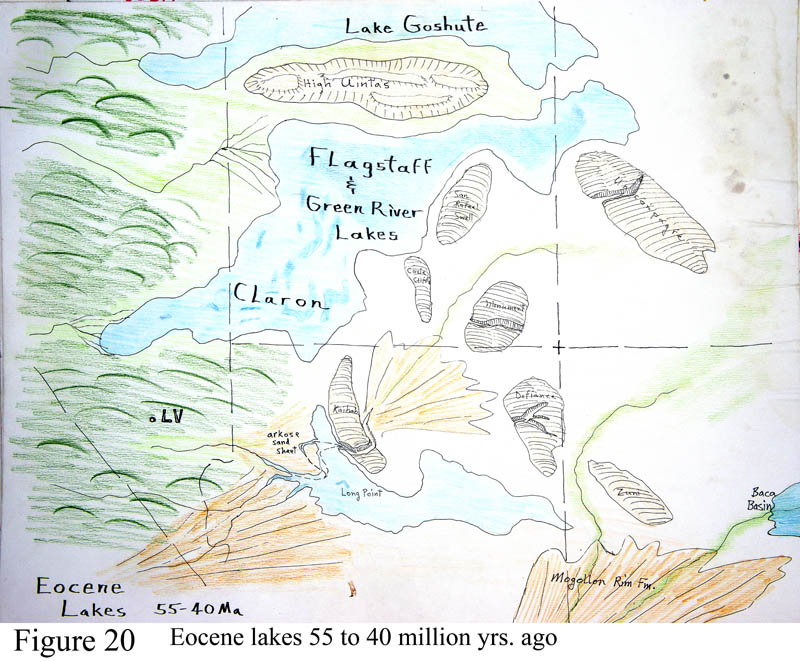 Lake Goshute
High Uintas
FLagstaff
&
Green River
Lakes
San
Rafael
Swell
Uncompagre
CLaron
Circle
Cliffs
Monument
Kaibab
Defiance
LV
arkose
sand
sheet
Long Point
Zuni
Baca
Basin
Mogollon Rim Fm.
Eocene
Lakes 55-40 Ma
Figure 20 Eocene lakes 55 to 40 million yrs. ago